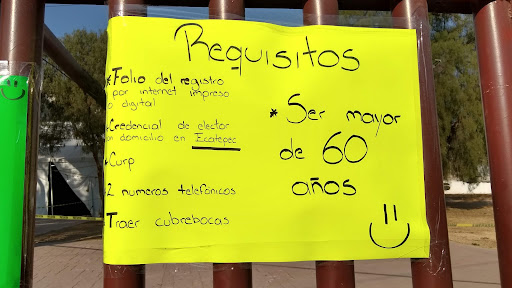 Requisitos
* Folio del registro
por internet impreso
o digital
* Credencial de elector
con domicilio en Ecatepec
* Curp
2 numeros telefonicos
Traer cubrebocas
* Ser mayor
de 60
años